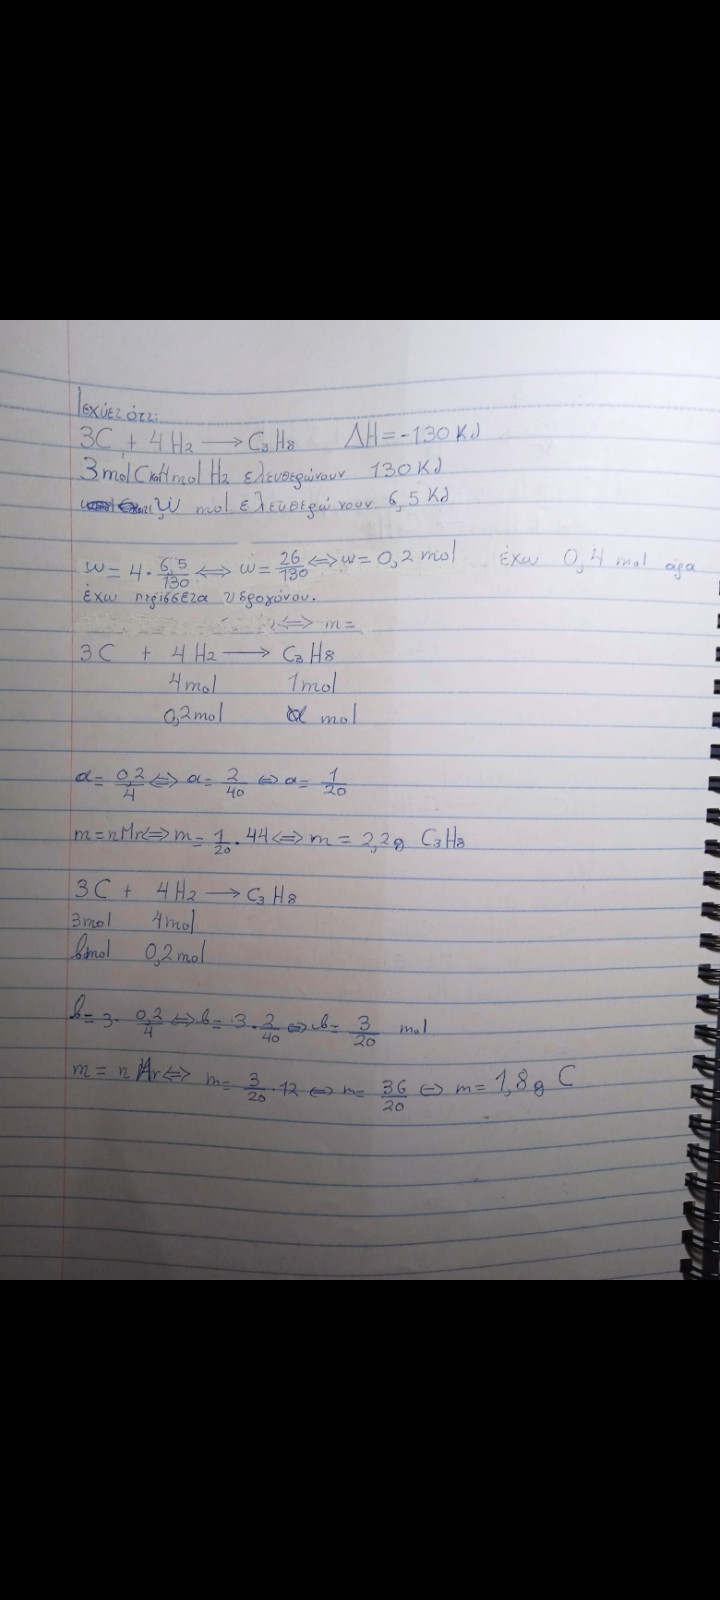 Ισχύει ότι:
3C + 4H₂ → C₃H₈ ΔH = -130 KJ
3mol C και 4mol H₂ ελευθερώνουν 130 KJ
w mol ελευθερώνουν 6,5 KJ
w = 4 · 6,5/130 ⇔ w = 26/130 ⇔ w = 0,2 mol έχω 0,4 mol άρα
έχω περίσσεια υδρογόνου.
⇔ m =
3C + 4H₂ → C₃H₈
4mol 1mol
0,2mol α mol
α = 0,2/4 ⇔ α = 2/40 ⇔ α = 1/20
m = nMr ⇔ m = 1/20 · 44 ⇔ m = 2,2g C₃H₈
3C + 4H₂ → C₃H₈
3mol 4mol
bmol 0,2mol
b = 3 · 0,2/4 ⇔ b = 3 · 2/40 ⇔ b = 3/20 mol
m = n Ar ⇔ m = 3/20 · 12 ⇔ m = 36/20 ⇔ m = 1,8g C